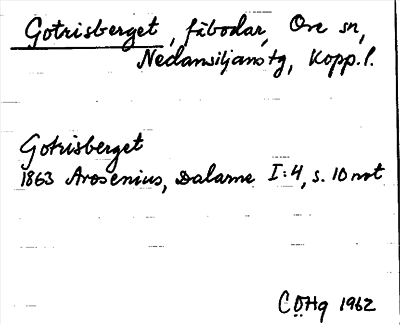 Gotrisberget, fäbodar, Ore sn,
Nedansiljans tg, Kopp. l.
Gotrisberget
1863 Arosenius, Dalarne I:4, s. 10 not
CÖHg 1962